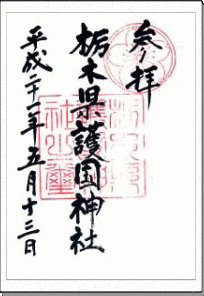 参拝
栃木県護国神社
平成二十一年五月十三日